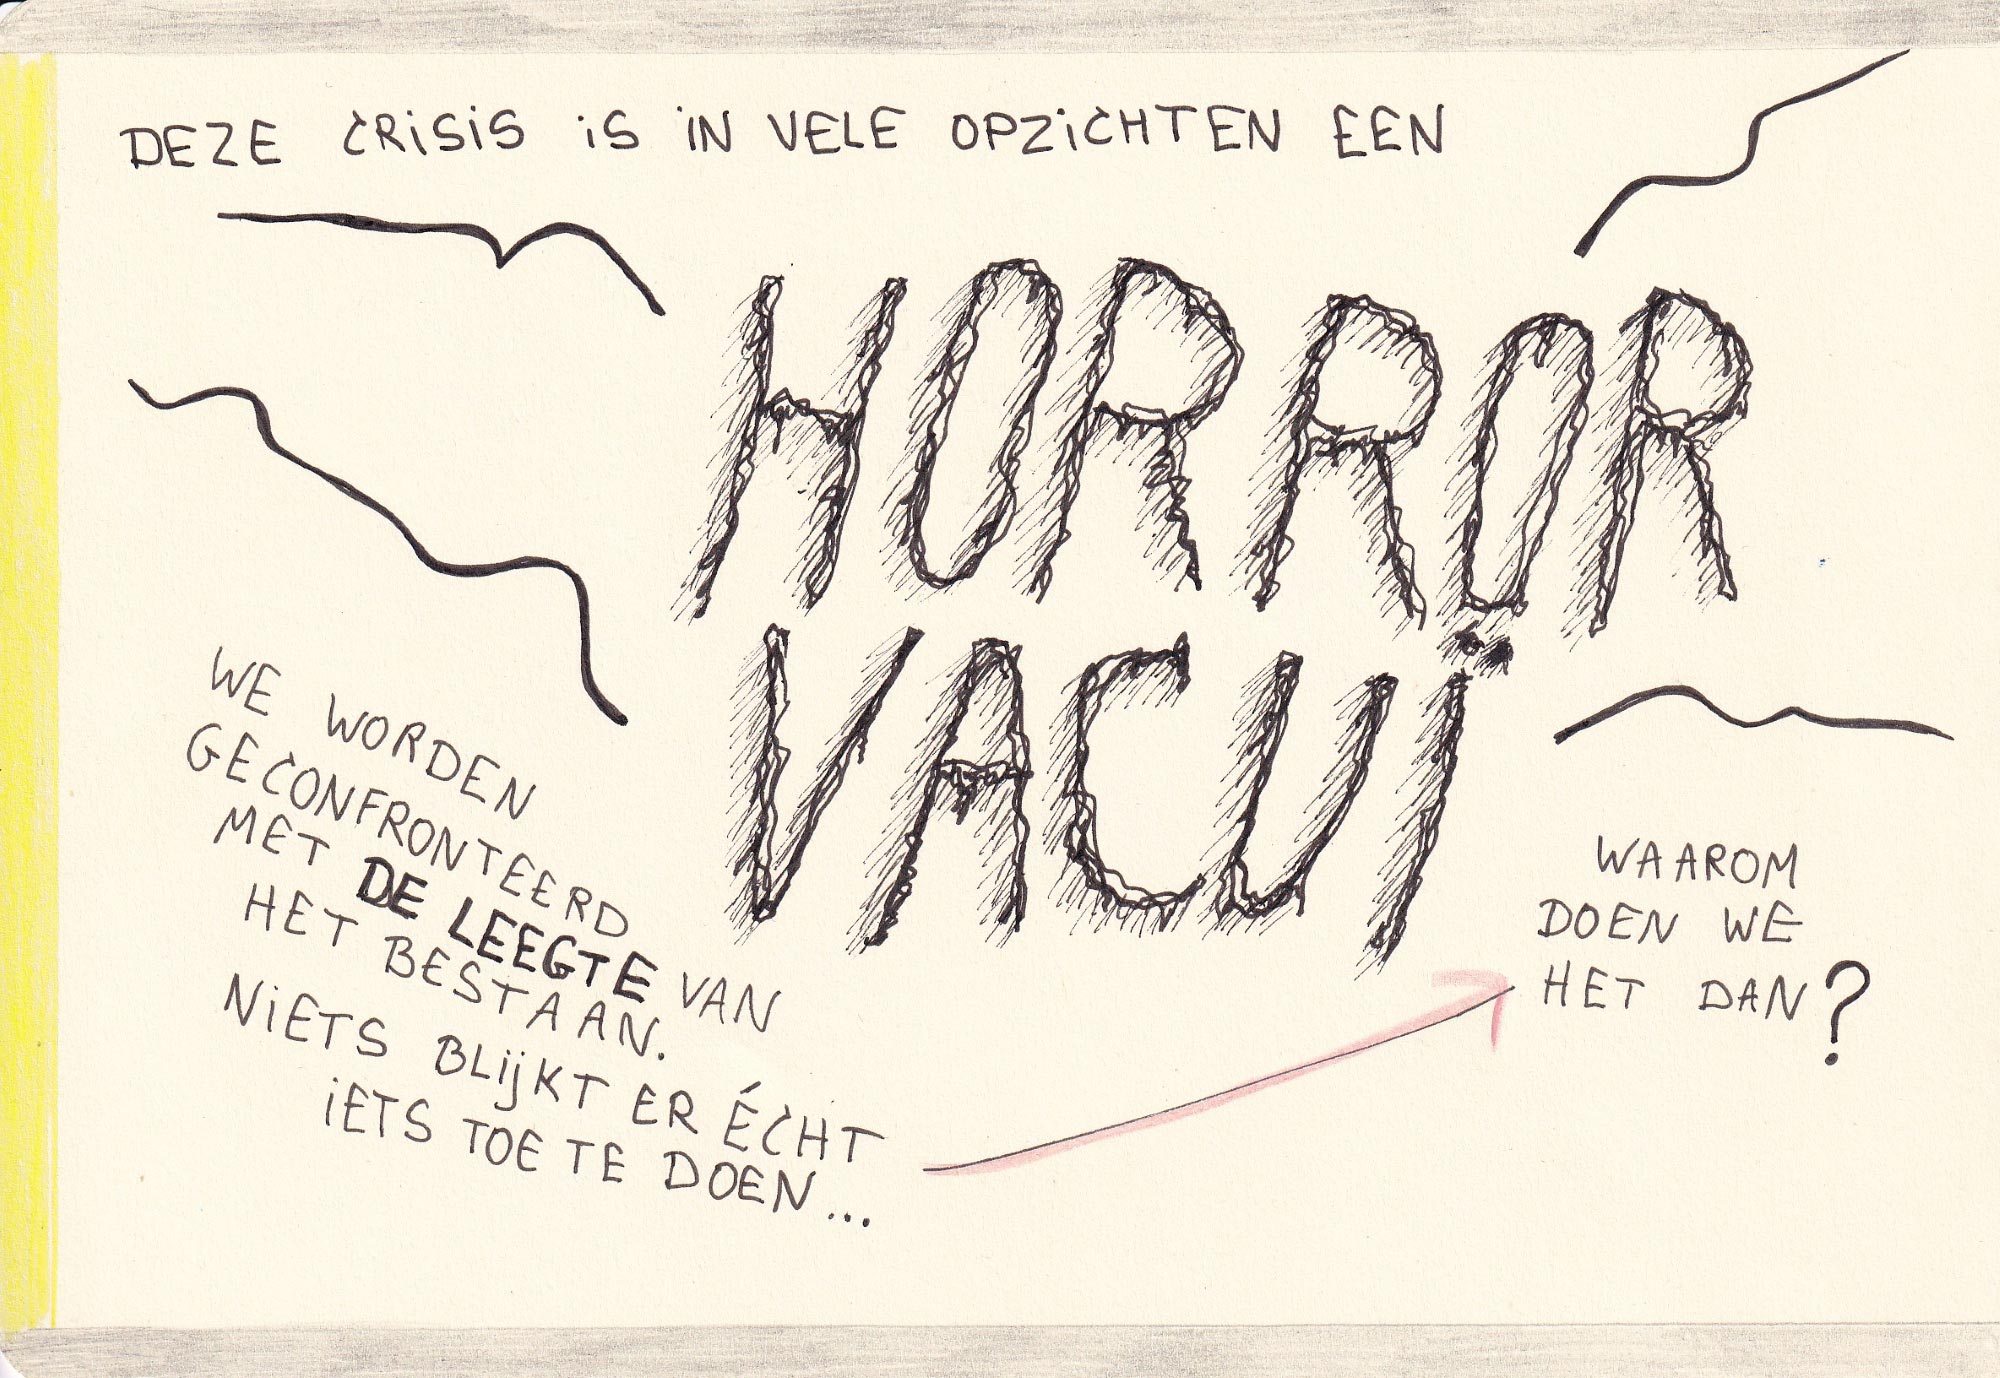 DEZE CRISIS IS IN VELE OPZICHTEN EEN
HORROR
VACUI
WE WORDEN
GECONFRONTEERD
MET DE LEEGTE VAN
HET BESTAAN.
NIETS BLIJKT ER ÉCHT
IETS TOE TE DOEN...
WAAROM
DOEN WE
HET DAN?